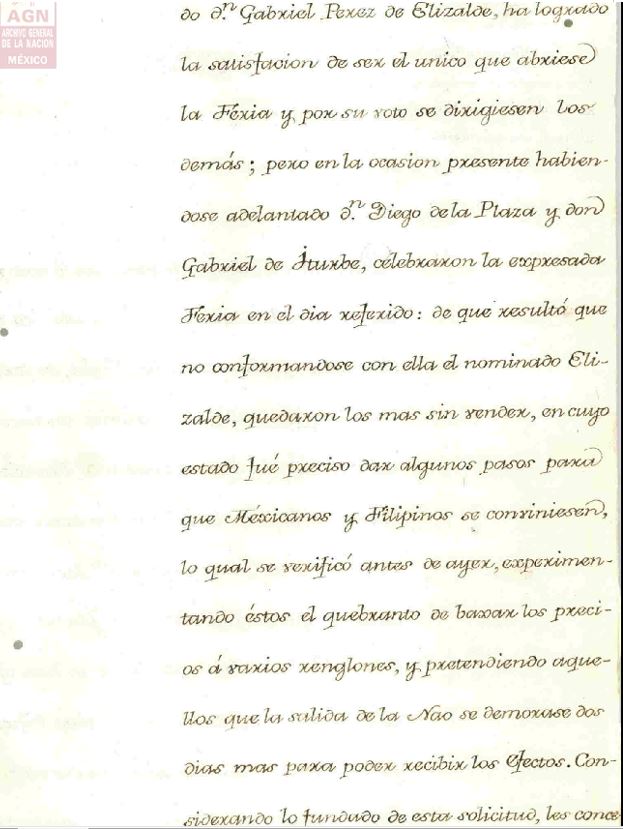 AGN
ARCHIVO GENERAL
DE LA NACION
MÉXICO
do d.n Gabriel Perez de Elizalde, ha logrado
la satisfacion de ser el unico que abriese
la Féria y por su voto se dirigiesen los
demás; pero en la ocasion presente habien-
dose adelantado d.n Diego dela Plaza y don
Gabriel de Iturbe, célebraron la expresada
Féria en el dia referido: de que resultó que
no conformandose con ella el nominado Eli-
zalde, quedaron los mas sin vender, en cuyo
estado fué preciso dar algunos pasos para
que Méxicanos y Filipinos se conviniesen,
lo qual se verificó antes de ayer, experimen-
tando éstos el quebranto de baxar los preci-
os á varios renglones, y pretendiendo aque-
llos que la salida de la Nao se demorase dos
dias mas para poder recibir los Efectos. Con-
siderando lo fundado de esta solicitud, les conce